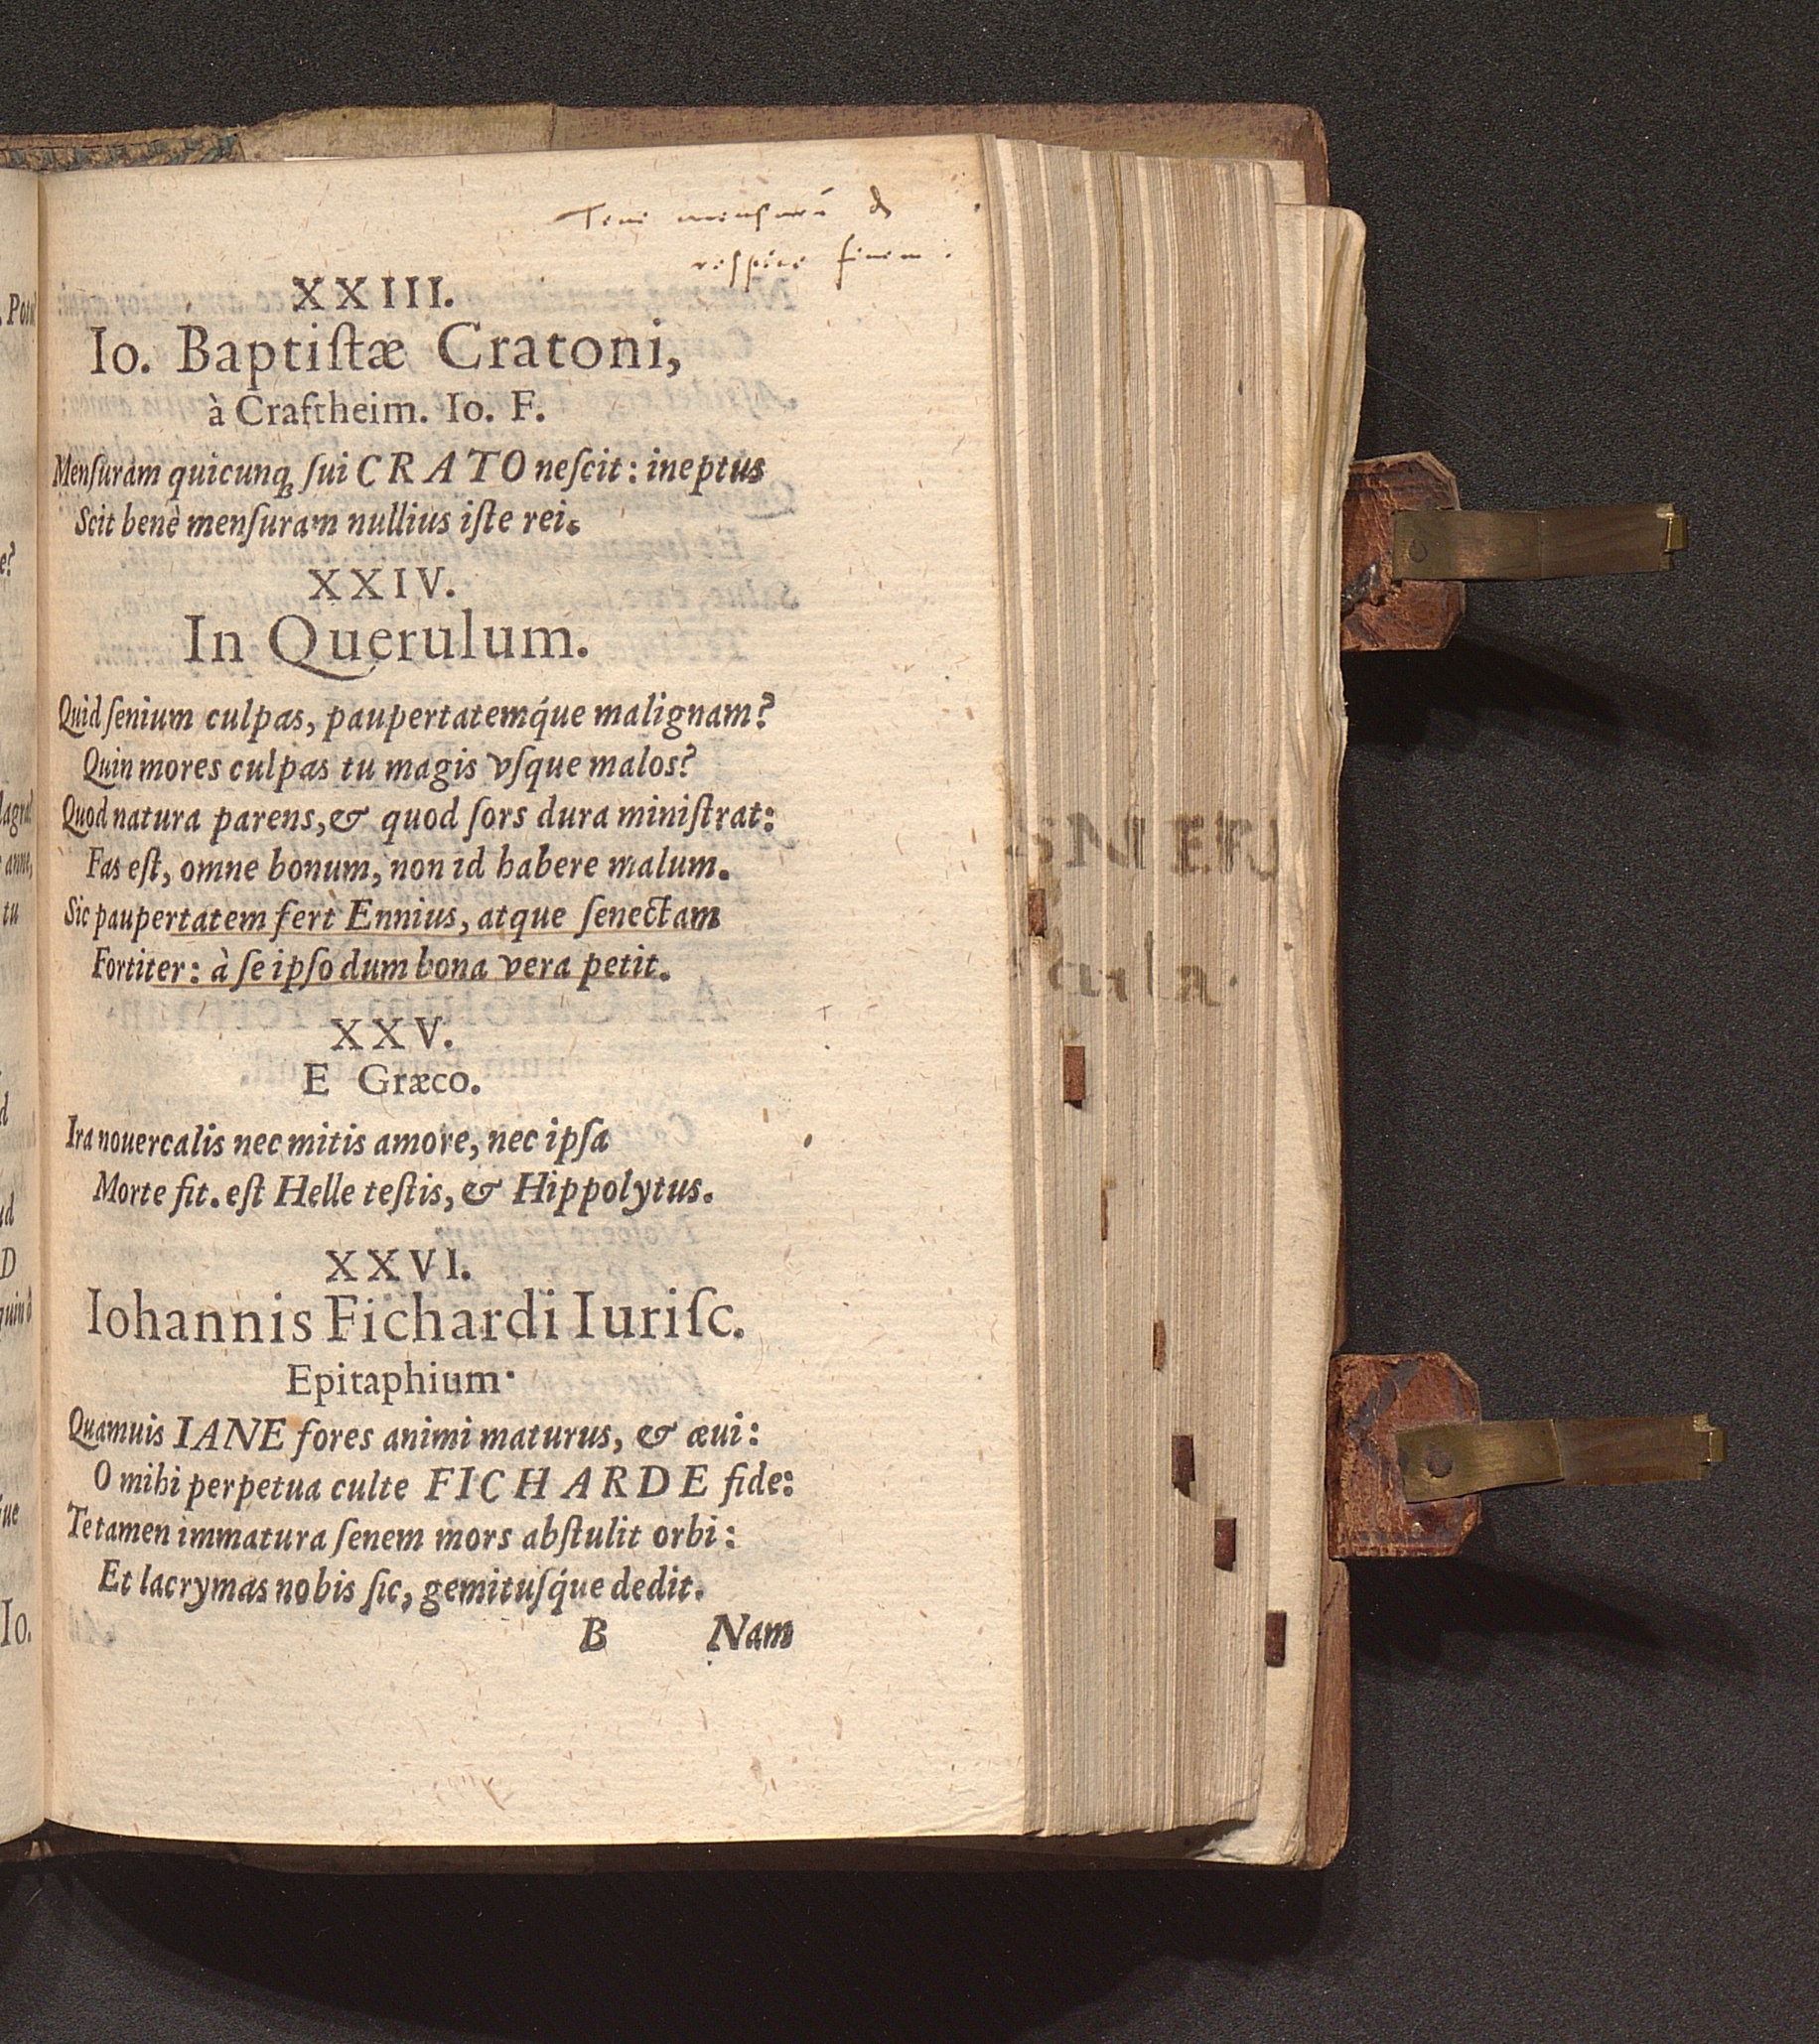 Tene mensurã &
respice finem.
XXIII.
Io. Baptiſtæ Cratoni,
à Craftheim. Io. F.
Menſuram quicunq; ſui CRATO neſcit: ineptus
Scit benè menſuram nullius iſte rei.
XXIV.
In Querulum.
Quid ſenium culpas, paupertatemq́ue malignam?
Quin mores culpas tu magis vſque malos?
Quod natura parens, & quod ſors dura miniſtrat:
Fas eſt, omne bonum, non id habere malum.
Sic paupertatem fert Ennius, atque ſenectam
Fortiter: à ſe ipſo dum bona vera petit.
XXV.
E Græco.
Ira nouercalis nec mitis amore, nec ipſa
Morte fit. eſt Helle teſtis, & Hippolytus.
XXVI.
Iohannis Fichardi Iuriſc.
Epitaphium.
Quamuis IANE fores animi maturus, & æui:
O mihi perpetua culte FICHARDE fide:
Te tamen immatura ſenem mors abſtulit orbi:
Et lacrymas nobis ſic, gemituſq́ue dedit.
B Nam